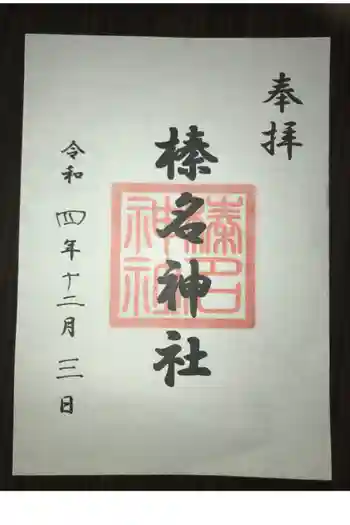 奉拝
榛名神社
榛名神社
令和四年十二月三日